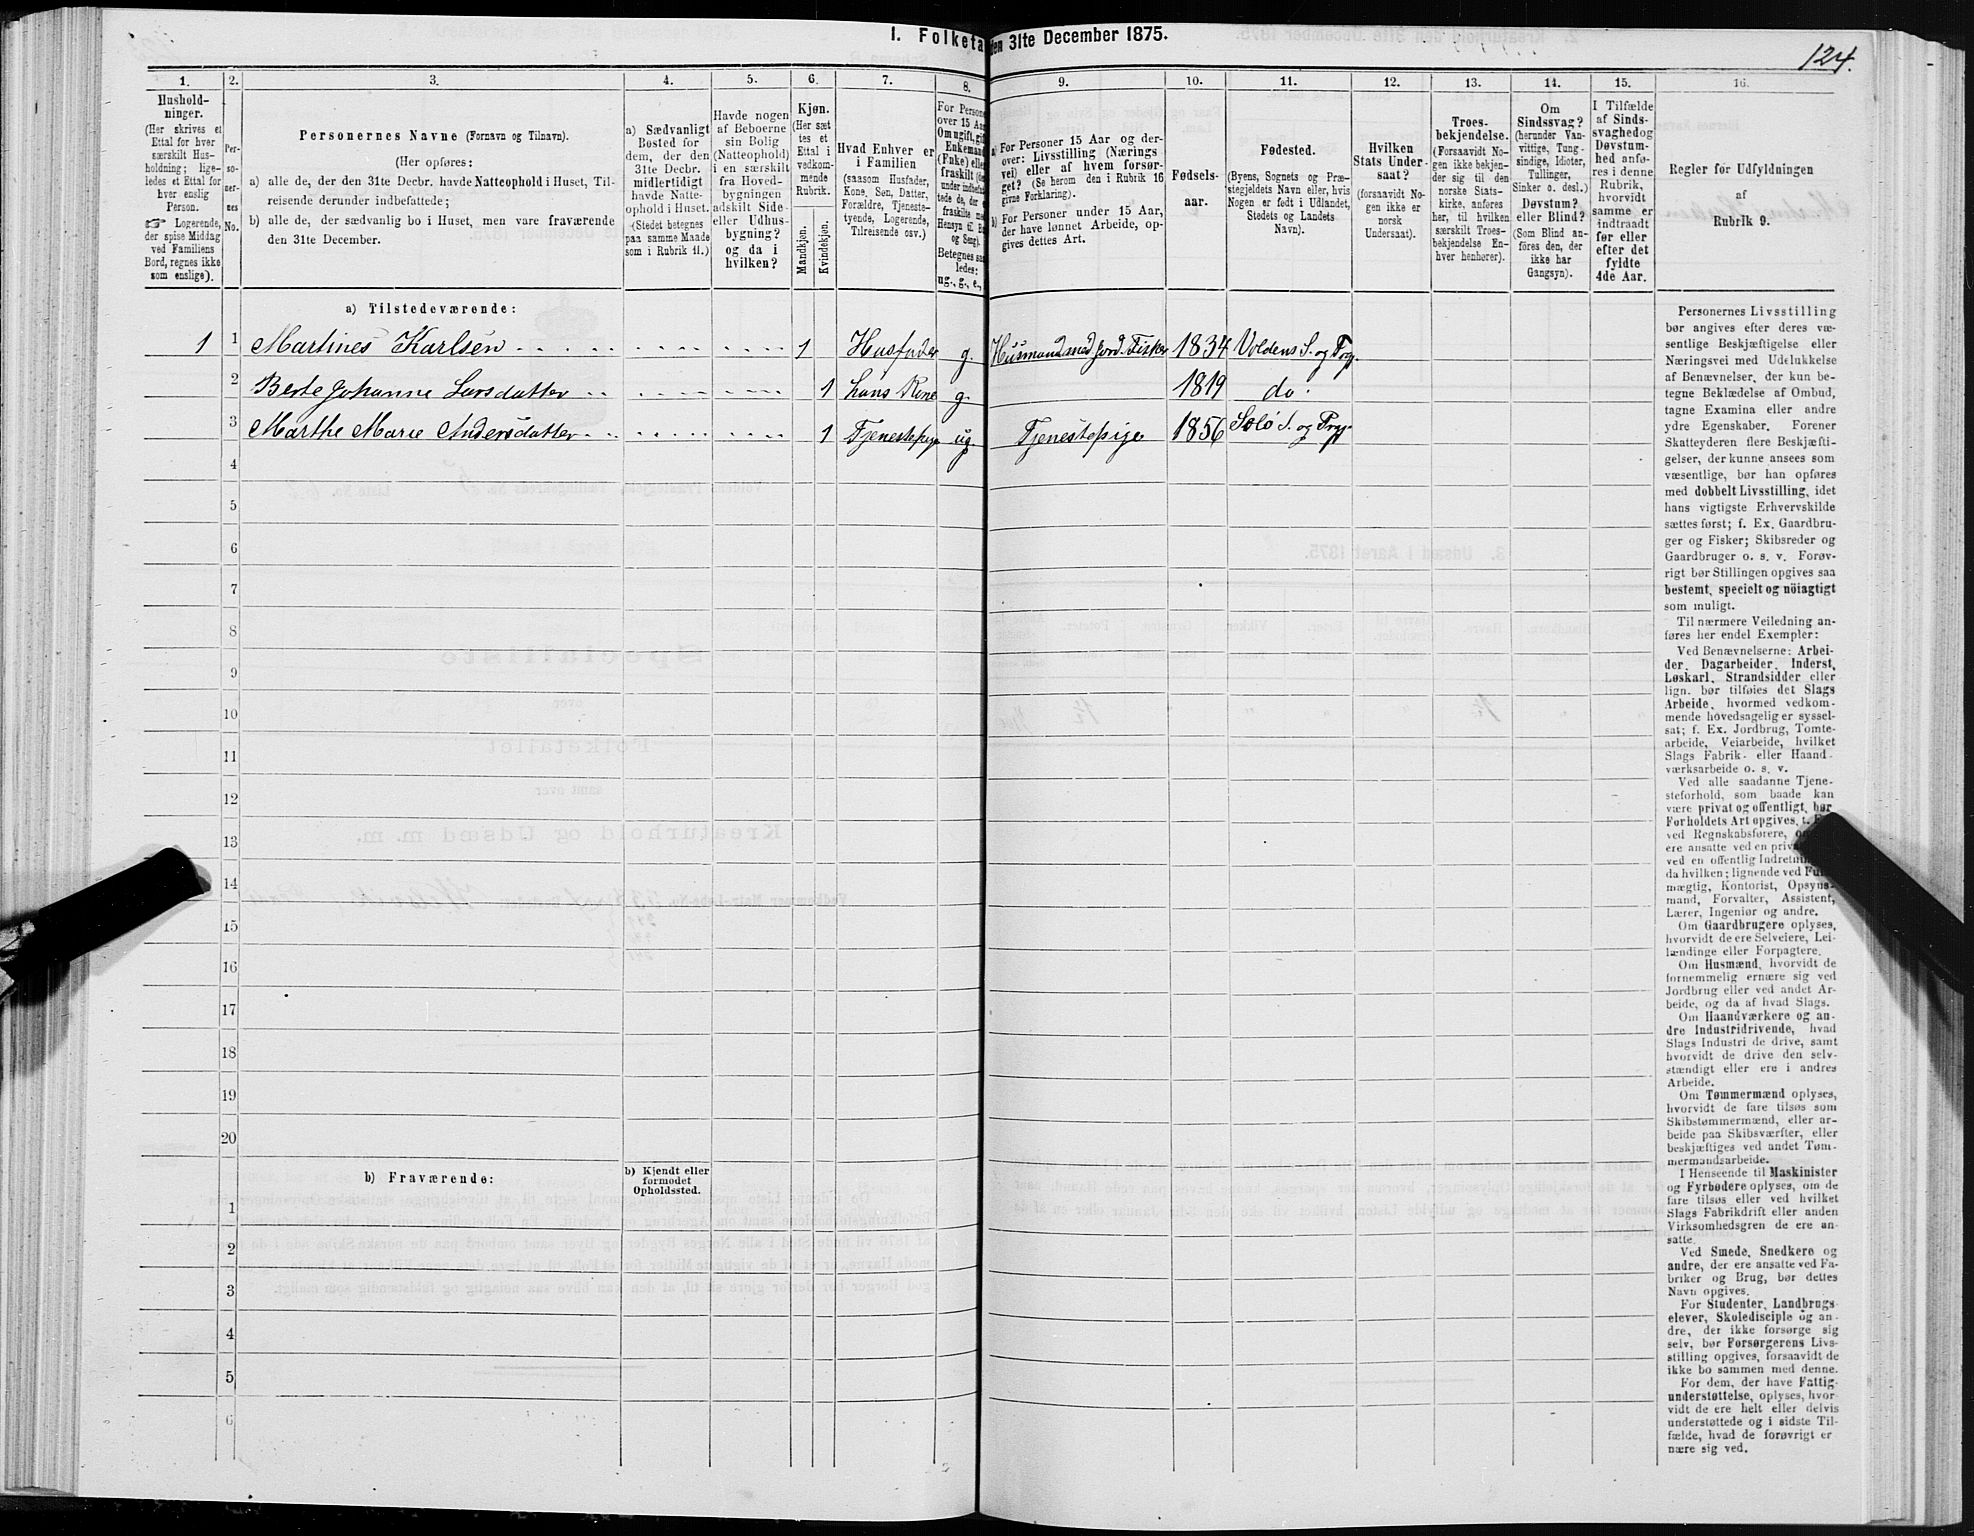 I. Folketa
den 31te December 1875.
124.
1.
2.
3.
4.
5.
6.
7.
8.
9.
10.
11.
12.
13.
14.
15.
16.
Hushold-
ninger.
(Her skrives et
Ettal for hver
særskilt Hus-
holdning; lige-
ledes et Ettal for
hver enslig
Person.
☞ Logerende,
der spise Middag
ved Familiens
Bord, regnes ikke
som enslige).
Per-
so-
ner-
nes
No.
Personernes Navne (Fornavn og Tilnavn).
(Her opføres:
a) alle de, der den 31te Decbr. havde Natteophold i Huset, Til-
reisende derunder indbefattede;
b) alle de, der sædvanlig bo i Huset, men vare fraværende
den 31te December.
a) Sædvanligt
Bosted for
dem, der den
31te Decbr.
midlertidigt
havde Natte-
ophold i Huset.
(Stedet betegnes
paa samme Maade
som i Rubrik 11.)
Havde nogen
af Beboerne
sin Bolig
(Natteophold)
i en særskilt
fra Hoved-
bygningen
adskilt Side-
eller Udhus-
bygning?
og da i
hvilken?
Kjøn.
(Her sæt
tes et
Ettal i
vedkom-
mende
Rubrik.
Mandkjøn.
Kvindekjøn.
Hvad Enhver er
i Familien
(saasom Husfader,
Kone, Søn, Datter,
Forældre, Tjeneste-
tyende, Logerende,
Tilreisende osv.)
For Persone
over 15 Aar
Om ugift, gif
Enkemand
(Fnke) elle
fraskilt
under indbefat
tede de, der e
fraskilte me
Hensyn til B
og Seng).
Betegnes saa
ledes:
ug., g., e.,
a) For Personer 15 Aar og der-
over: Livsstilling (Nærings
vei) eller af hvem forsør-
get? (Se herom den i Rubrik 16
givne Forklaring).
b) For Personer under 15 Aar,
der have lønnet Arbeide, op-
gives dettes Art.
Fødsels-
aar.
Fødested.
(Byens, Sognets og Præ-
stegjeldets Navn eller, hvis
Nogen er født i Udlandet,
Stedets og Landets
Navn).
Hvilken
Stats Under-
saat?
(forsaavidt No-
gen ikke er
norsk
Undersaat).
Troes-
bekjendelse.
(Forsaavidt No-
gen ikke bekjen-
der sig til den
norske Stats-
kirke, anføres
her, til hvilken
særskilt Troes-
bekjendelse En-
hver henhører).
Om
Sindssvag?
(herunder Van-
vittige, Tung-
sindige, Idioter,
Tullinger,
Sinker o. desl.)
Døvstum?
eller Blind?
(Som Blind an-
føres den, der
ikke har
Gangsyn).
I Tilfælde
af Sinds-
svaghed og
Døvstum-
hed anfø-
res i denne
Rubrik,
hvorvidt
samme er
indtraadt
før eller
efter det
fyldte
4de Aar.
Regler for Udfyldningen
af
Rubrik 9.
a) Tilstedeværende:
1 1 Martines Karlsen 1 Husfader g. Husmand med Jord. Fisker 1834 Voldens S. og Prgj.
2 Berte Johanne Larsdatter 1 hans Kone g. 1819 do.
3 Marthe Marie Andersdatter 1 Tjenestepige ug Tjenestepige 1856 S. og Prgj.
4
5
6
7
8
9
10
11
12
13
14
15
16
17
18
19
20
b) Fraværende:
b) Kjendt eller
formodet
Opholdssted.
1
2
3
4
5
6
Personernes Livsstilling
bør angives efter deres væ-
sentlige Beskjæftigelse eller
Næringsvei med Udelukkelse
af Benævnelser, der kun be-
tegne Beklædelse af Ombud,
tagne Examina eller andre
ydre Egenskaber. Forener
Skatteyderen flere Beskjæfti-
gelser, der kunne ansees som
væsentlige, bør han opføres
med dobbelt Livsstilling, idet
hans vigtigste Erhvervskilde
sættes først; f. Ex. Gaardbru-
ger og Fisker; Skibsreder og
Gaardbruger o. s. v. Forøv-
rigt bør Stillingen opgives saa
bestemt, specielt og nöiagtigt
som muligt.
Til nærmere Veiledning an-
føres her endel Exempler:
Ved Benævnelserne: Arbei-
der, Dagarbeider, Inderst,
Løskarl, Strandsidder eller
lign. bør tilføies det Slags
Arbeide, hvormed vedkom-
mende hovedsagelig er syssel-
sat; f. Ex. Jordbrug, Tomte-
arbeide, Veiarbeide, hvilket
Slags Fabrik- eller Haand-
værksarbeide o. s. v.
Ved alle saadanne Tjene-
steforhold, som baade kan
være privat og offentligt, bør
Forholdets Art opgives,
ved Regnskabsførere,
ere ansatte ved en
ved en offentlig
da hvilken; lignende ved
mægtig, Kontorist, Opsyns-
mand, Forvalter, Assistent,
Lærer, Ingeniør og andre.
Om Gaardbrugere oplyses,
hvorvidt de ere Selveiere, Lei-
lændinge eller Forpagtere.
Om Husmænd, hvorvidt de
fornemmelig ernære sig ved
Jordbrug eller ved andet Ar-
beide, og da af hvad Slags.
Om Haandværkere og an-
dre Industridrivende, hvad
Slags Industri de drive, samt
hvorvidt de drive den selv-
stændigt eller ere i andres
Arbeide.
Om Tømmermænd oplyses,
hvorvidt de fare tilsøs som
Skibstømmermænd, eller ar-
beide paa Skibsværfter, eller
beskjæftiges ved andet Tøm-
mermandsarbeide.
I Henseende til Maskinister
og Fyrbødere oplyses, om de
fare tilsøs eller ved hvilket
Slags Fabrikdrift eller anden
Virksomhedsgren de ere an-
satte.
Ved Smede, Snedkere og
andre, der ere ansatte ved Fa-
briker og Brug, bør dettes
Navn opgives.
For Studenter, Landbrugs
elever, Skoledisciple og an-
dre, der ikke forsørge sig
selv, bør Forsørgerens Livs-
stilling opgives, forsaavidt de
ikke bo sammen med denne.
For dem, der have Fattig-
understøttelse, oplyses, hvor-
vidt de ere helt eller delvis
understøttede og i sidste Til-
fælde, hvad de forøvrigt er
nære sig ved.